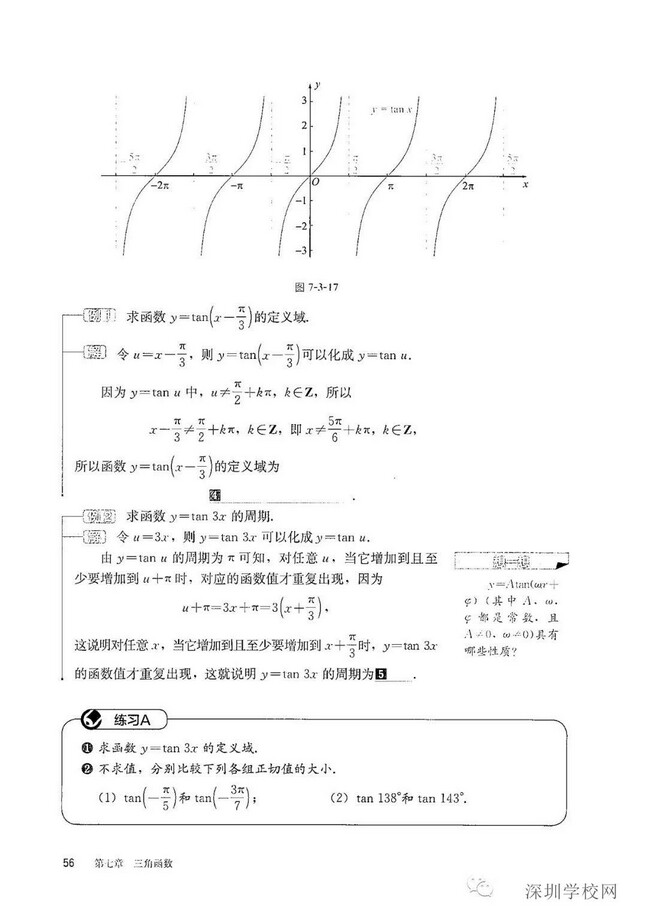 y
3
2
1
-1
-2
-3
y=tan x
-5π/2
-2π
3π/2
-π
-π/2
O
π/2
π
3π/2
2π
5π/2
x
图 7-3-17
例 1 求函数 y=tan(x-π/3)的定义域.
解 令 u=x-π/3，则 y=tan(x-π/3)可以化成 y=tan u.
因为 y=tan u 中，u≠π/2+kπ，k∈Z，所以
x-π/3≠π/2+kπ，k∈Z，即 x≠5π/6+kπ，k∈Z，
所以函数 y=tan(x-π/3)的定义域为
4 .
例 2 求函数 y=tan 3x 的周期.
解 令 u=3x，则 y=tan 3x 可以化成 y=tan u.
由 y=tan u 的周期为 π 可知，对任意 u，当它增加到且至
少要增加到 u+π 时，对应的函数值才重复出现，因为
u+π=3x+π=3(x+π/3)，
这说明对任意 x，当它增加到且至少要增加到 x+π/3 时，y=tan 3x
的函数值才重复出现，这就说明 y=tan 3x 的周期为 5 .
想一想
y=Atan(ωx+
φ)（其中 A，ω，
φ 都是常数，且
A≠0，ω≠0)具有
哪些性质?
练习A
1 求函数 y=tan 3x 的定义域.
2 不求值，分别比较下列各组正切值的大小.
(1) tan(-π/5)和 tan(-3π/7)； (2) tan 138°和 tan 143°.
56 第七章 三角函数
深圳学校网